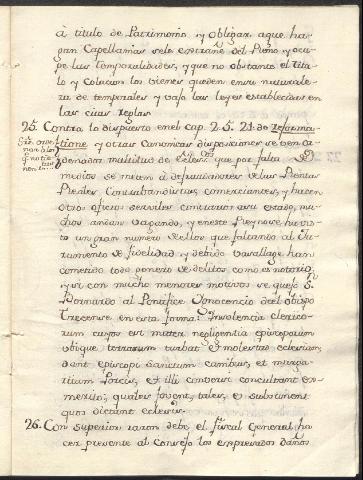 à titulo de Patrimonio y obligar aque ha-
gan Capellanias sele extrañe del Reyno y ocu-
pe las Temporalidades, y que no obstante el Titu-
lo y colacion los vienes queden en su naturale-
za de temporales y vajo las leyes establecidas en
las citas reglas
25. Contra lo dispuesto en el cap. 2. S. 21. de Reforma-
tione, y otras Canonicas disposiciones se ven or-
denados multitud de Eclesi.cos que por falta de
medios se meten à defraudadores de las Rentas
Reales Contrabandistas, comerciantes, y hacen
otros oficios serviles contrarios a su estado, mu-
chos andan vagando, y en este Reyno se ha vis-
to un gran numero de ellos que faltando al Ju-
ramento de fidelidad y debido vasallage han
cometido todo genero de delitos como es notorio,
y si con mucho menores motivos se quejó S.n
Bernardo al Pontifice Ynocencio del obispo
Trecense en esta forma: Ynsolencia clerico-
rum cuyus est mater negligentia episcoporum
ubique terrarum turbat et molestat eclesiam,
dant episcopi Sanctum canibus, et marga-
ritas Porcis, et illi conversi conculcant eos
merito, quales fovent, tales, et substinent
quos dictant eclesie.
26. Con superior razon debe el fiscal General ha-
cer presente al Consejo los expresados daños